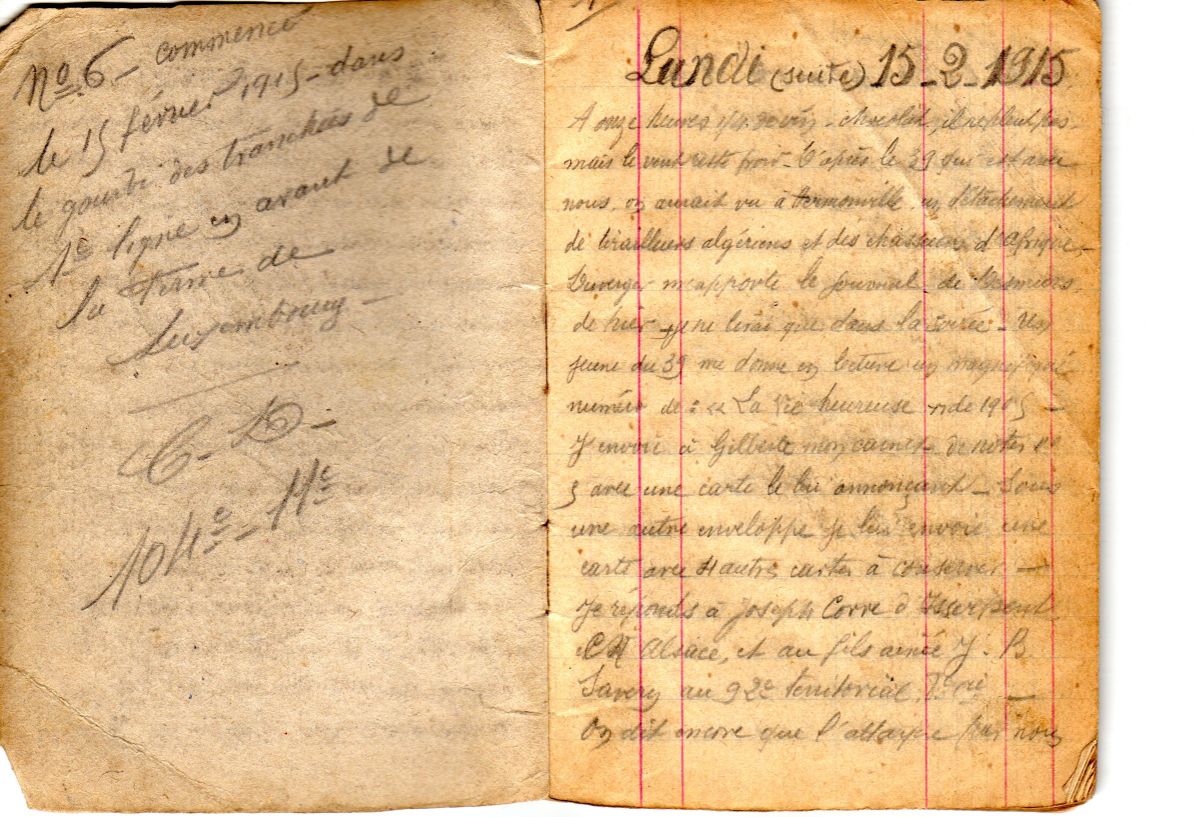 No 6 - commencé
le 15 février 1915 - dans
le gourbi des tranchées de
1e ligne en avant de
la ferme de
Luxembourg -
C. D -
104e - 11e
Lundi (suite) 15-2-1915
A onze heures 1/4 - chocolat, il ne pleut pas
mais le vent reste froid - D'après le 39 qui est avec
nous, on aurait vu à Hermonville un détachement
de tirailleurs algériens et des chasseurs d'Afrique -
Duverger m'apporte le journal de
de hier - je ne lirai que dans la soirée - Un
jeune du 39 me donne en lecture un magnifique
numéro de : "La Vie heureuse" de 1905 -
J'envoie à Gilberte mon carnet de notes no
5 avec une carte le lui annonçant - Sous
une autre enveloppe je lui envoie une
carte avec 4 autres cartes à conserver -
Je réponds à Joseph Corre d'
Alsace, et au fils ainée J. B
Savery au 92e territorial. -
On dit encore que l'attaque par nous